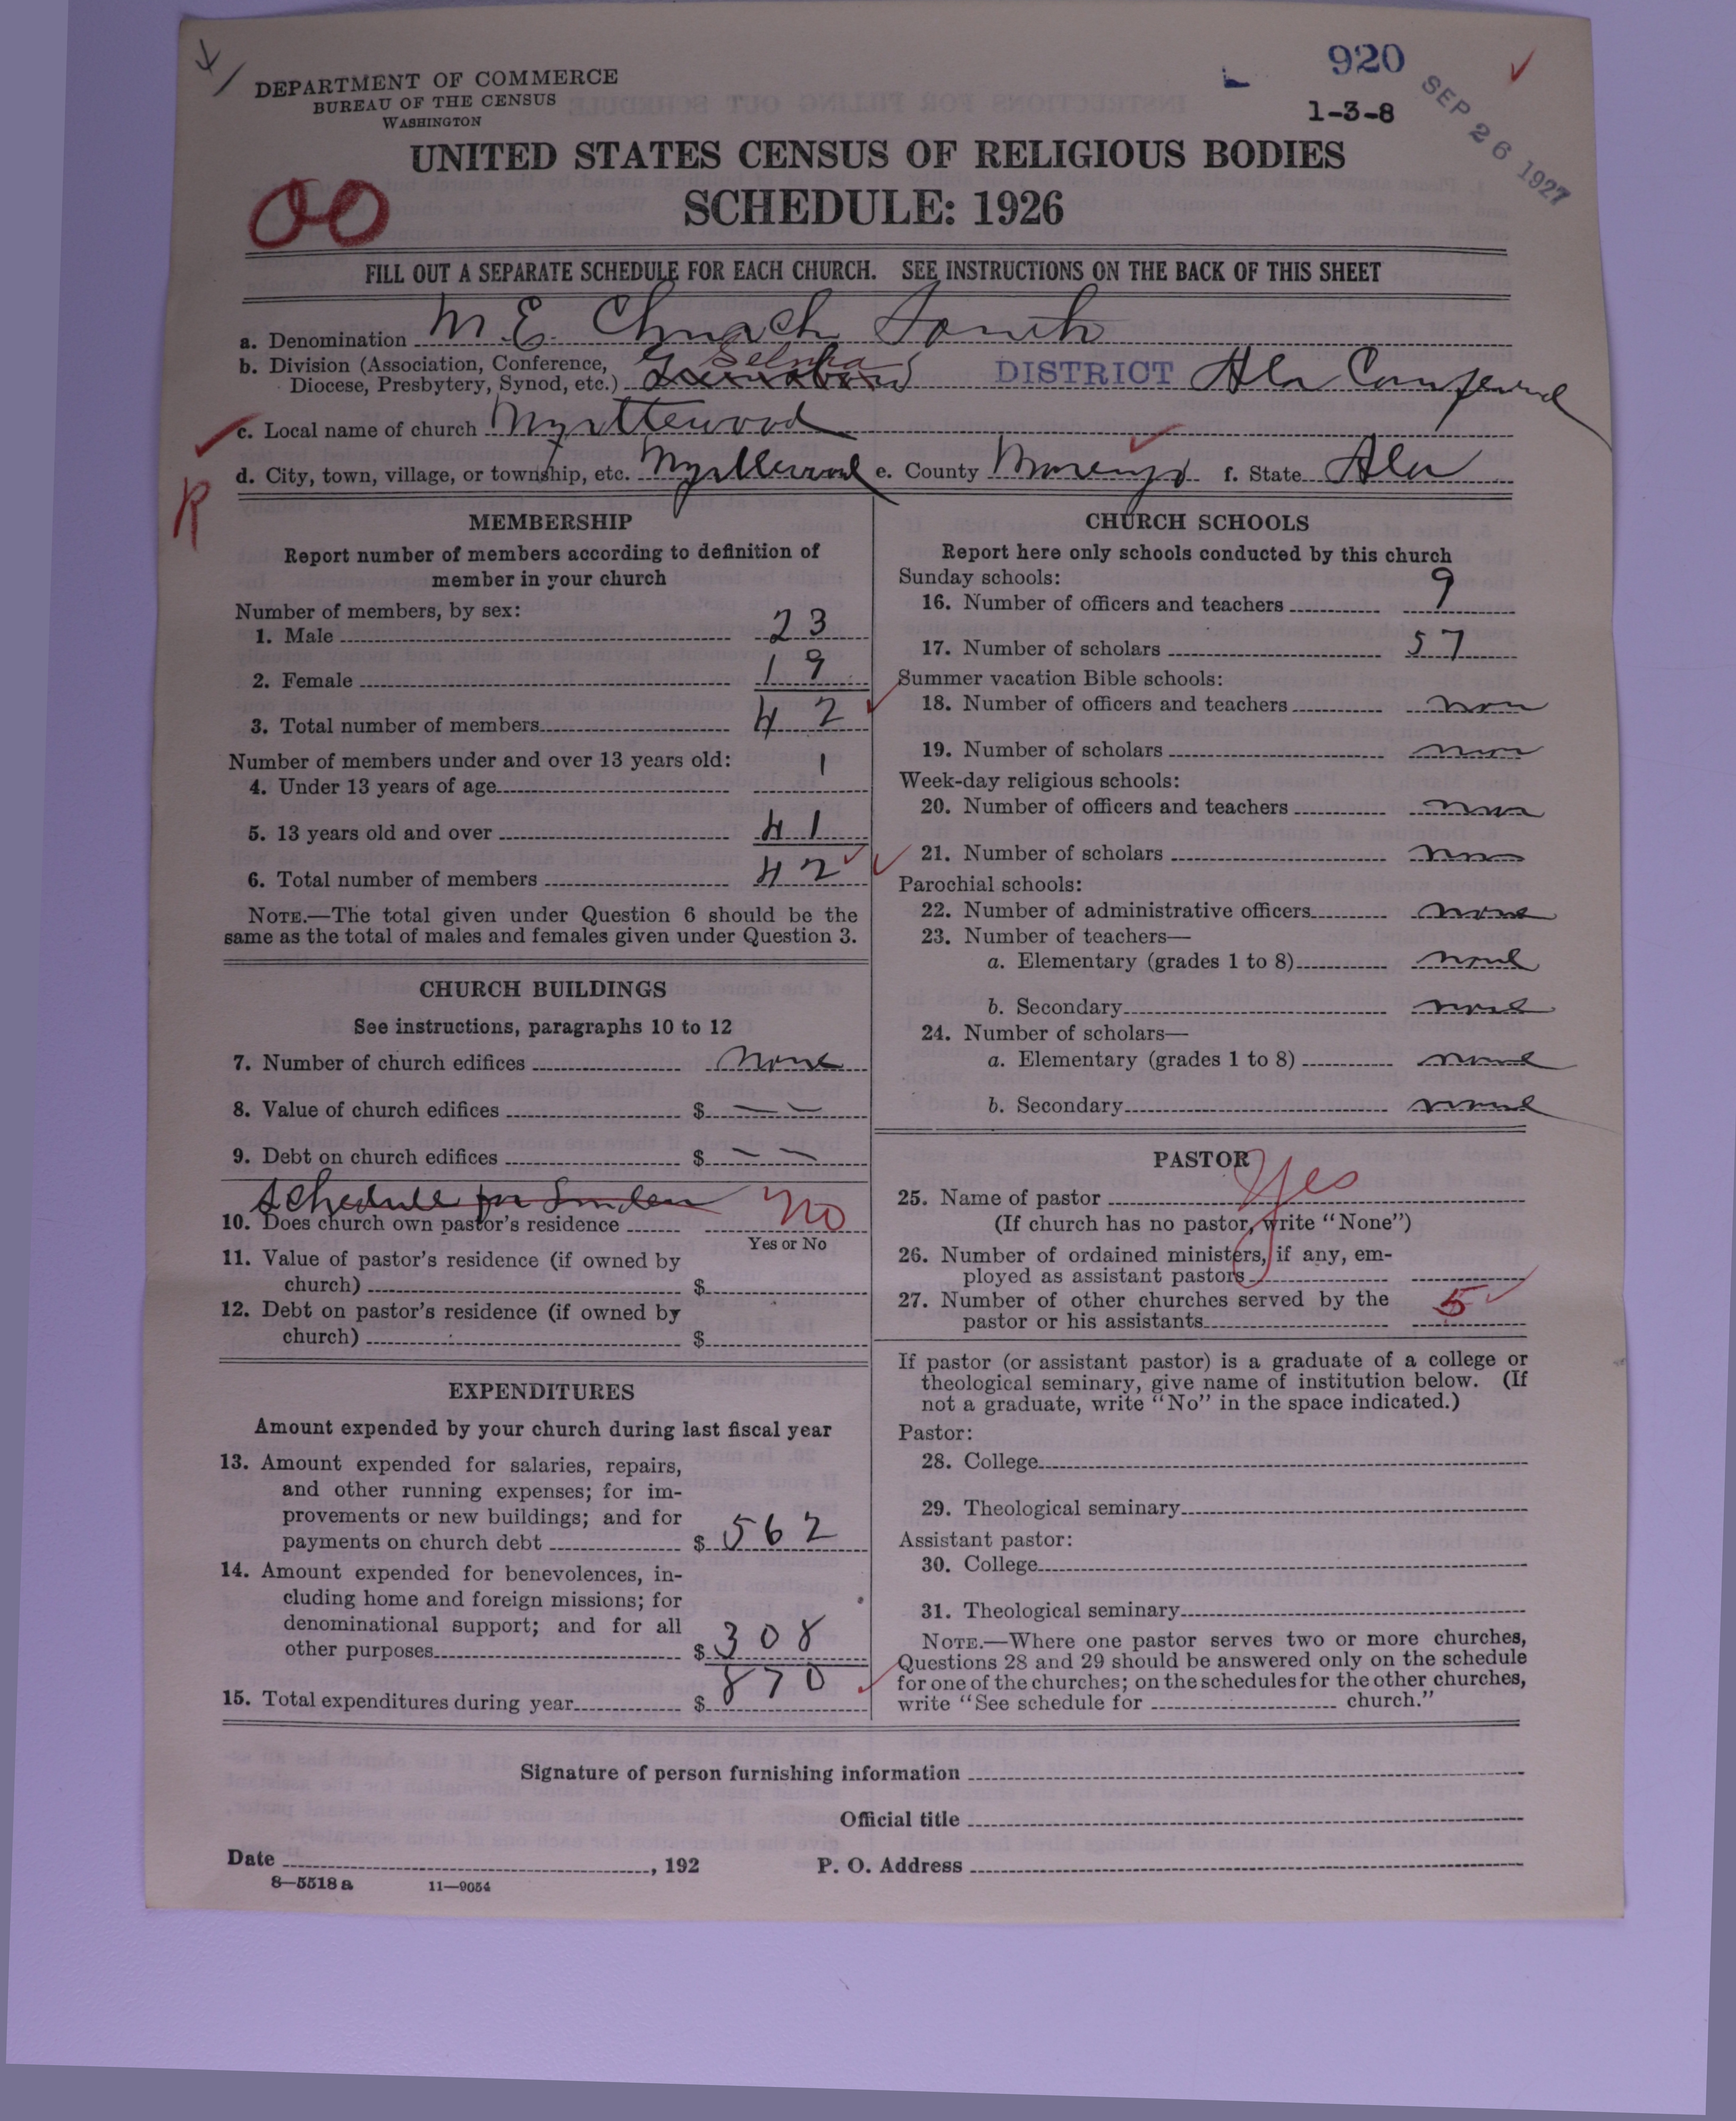 920
1-3-8
SEP 26 1927
DEPARTMENT OF COMMERCE
BUREAU OF THE CENSUS
WASHINGTON
UNITED STATES CENSUS OF RELIGIOUS BODIES
SCHEDULE: 1926
00
FILL OUT A SEPARATE SCHEDULE FOR EACH CHURCH. SEE INSTRUCTIONS ON THE BACK OF THIS SHEET
a. Denomination M. E. Church South
b. Division (Association, Conference, Diocese, Presbytery, Synod, etc.) Selma DISTRICT Ala Conference
c. Local name of church Myrtlewood
d. City, town, village, or township, etc. Myrtlewood e. County Marengo f. State Ala
R
MEMBERSHIP
Report number of members according to definition of
member in your church
Number of members, by sex:
1. Male 23
2. Female 19
3. Total number of members 42
Number of members under and over 13 years old:
4. Under 13 years of age 1
5. 13 years old and over 41
6. Total number of members 42
NOTE.—The total given under Question 6 should be the
same as the total of males and females given under Question 3.
CHURCH BUILDINGS
See instructions, paragraphs 10 to 12
7. Number of church edifices none
8. Value of church edifices $ — —
9. Debt on church edifices $ — —
Schedule for Linden
10. Does church own pastor's residence No
Yes or No
11. Value of pastor's residence (if owned by
church) $
12. Debt on pastor's residence (if owned by
church) $
EXPENDITURES
Amount expended by your church during last fiscal year
13. Amount expended for salaries, repairs,
and other running expenses; for im-
provements or new buildings; and for
payments on church debt $ 562
14. Amount expended for benevolences, in-
cluding home and foreign missions; for
denominational support; and for all
other purposes $ 308
15. Total expenditures during year $ 870
CHURCH SCHOOLS
Report here only schools conducted by this church
Sunday schools:
16. Number of officers and teachers 9
17. Number of scholars 57
Summer vacation Bible schools:
18. Number of officers and teachers non
19. Number of scholars non
Week-day religious schools:
20. Number of officers and teachers non
21. Number of scholars non
Parochial schools:
22. Number of administrative officers none
23. Number of teachers—
a. Elementary (grades 1 to 8) none
b. Secondary none
24. Number of scholars—
a. Elementary (grades 1 to 8) none
b. Secondary none
PASTOR
25. Name of pastor Yes
(If church has no pastor, write "None")
26. Number of ordained ministers, if any, em-
ployed as assistant pastors
27. Number of other churches served by the
pastor or his assistants 5
If pastor (or assistant pastor) is a graduate of a college or
theological seminary, give name of institution below. (If
not a graduate, write "No" in the space indicated.)
Pastor:
28. College
29. Theological seminary
Assistant pastor:
30. College
31. Theological seminary
NOTE.—Where one pastor serves two or more churches,
Questions 28 and 29 should be answered only on the schedule
for one of the churches; on the schedules for the other churches,
write "See schedule for church."
Signature of person furnishing information
Official title
Date , 192 P. O. Address
8—5518 a 11—9054